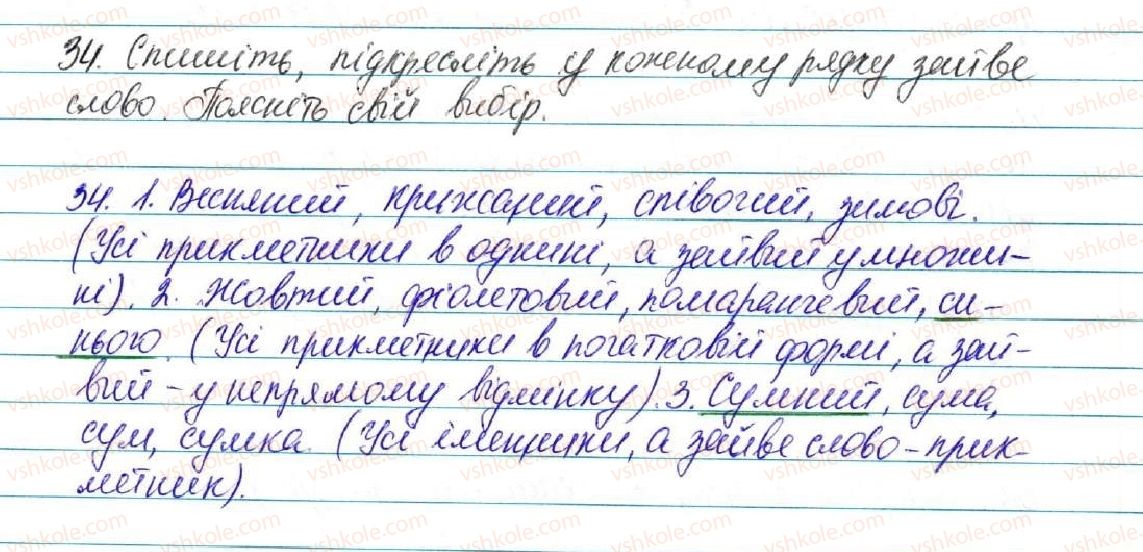 34. Спишіть, підкресліть у кожному рядку зайве
слово. Поясніть свій вибір.
34. 1. Весняний, крижаний, співочий, зимові.
(Усі прикметники в однині, а зайвий у множи-
ні). 2. Жовтий, фіолетовий, помаранчевий, си-
нього. (Усі прикметники в початковій формі, а зай-
вий - у непрямому відмінку). 3. Сумний, сума,
сум, сумка. (Усі іменники, а зайве слово - прик-
метник).